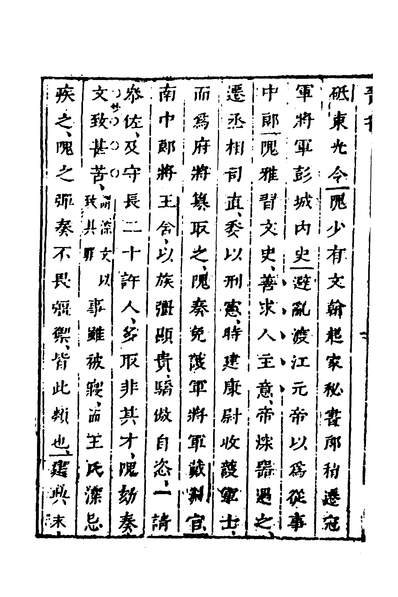 砥東光令隗少有文翰起家秘書郎稍遷冠
軍將軍彭城内史避亂渡江元帝以爲從事
中郎隗雅習文史、善求人主意、帝深器遇之、
遷丞相司直、委以刑憲時建康尉收護軍士、
而爲府將篡取之、隗奏免護軍將軍戴淵官、
南中郎將王含、以族彊顯貴、驕傲自恣、一請
參佐、及守長二十許人、多取非其才、隗劾奏
文致甚苦、謂深文以致其罪事雖被寢、而王氏深忌
疾之、隗之彈奏不畏彊禦、皆此類也、建興末